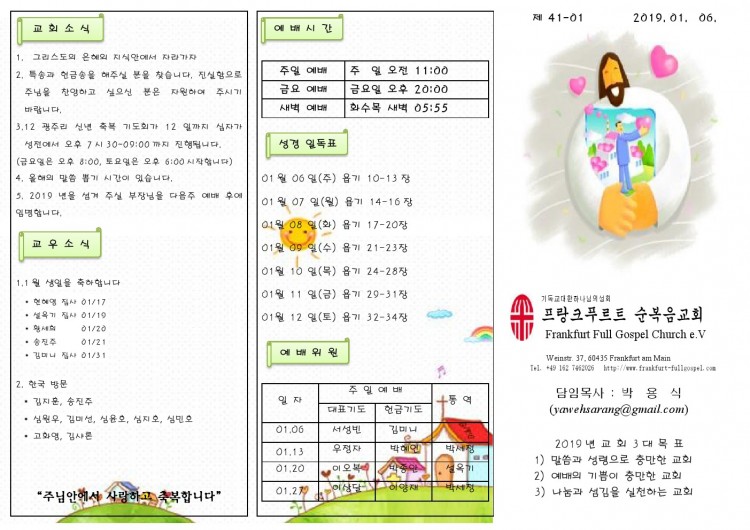 교회소식
1. 그리스도의 은혜의 지식안에서 자라가자
2. 특송과 헌금송을 해주실 분을 찾습니다. 진실함으로
주님을 찬양하고 싶으신 분은 자원하여 주시기
바랍니다.
3.12 광주리 신년 축복 기도회가 12 일까지 십자가
성전에서 오후 7시 30-09:00 까지 진행됩니다.
(금요일은 오후 8:00, 토요일은 오후 6:00 시작합니다)
4. 올해의 말씀 뽑기 시간이 있습니다.
5. 2019 년을 섬겨 주실 부장님을 다음주 예배 후에
임명합니다.
교우소식
1.1 월 생일을 축하합니다
• 현혜영 집사 01/17
• 설옥기 집사 01/19
• 황세희 01/20
• 송진주 01/21
• 김미니 집사 01/31
2. 한국 방문
• 김지훈, 송진주
• 심원우, 김미선, 심윤호, 심지호, 심민호
• 고화영, 김샤론
“주님안에서 사랑하고 축복합니다”
예배시간
주일 예배 주 일 오전 11:00
금요 예배 금요일 오후 20:00
새벽 예배 화수목 새벽 05:55
성경 일독표
01월 06일(주) 욥기 10-13 장
01월 07일(월) 욥기 14-16장
01월 08일(화) 욥기 17-20장
01월 09일(수) 욥기 21-23장
01월 10일(목) 욥기 24-28장
01월 11일(금) 욥기 29-31장
01월 12일(토) 욥기 32-34장
예배위원
일자 주일예배 통역
대표기도 헌금기도
01.06 서성빈 김미니
01.13 우정자 박혜인 박세정
01.20 이오복 박종만 설옥기
01.27 이상달 이영재 박세정
제 41-01 2019. 01. 06.
기독교대한하나님의성회
프랑크푸르트 순복음교회
Frankfurt Full Gospel Church e.V
Weinstr. 37, 60435 Frankfurt am Main
Tel. +49 162 7462026 http://www.frankfurt-fullgospel.com
담임목사 : 박 용 식
(yawehsarang@gmail.com)
2019년 교회 3대 목표
1) 말씀과 성령으로 충만한 교회
2) 예배의 기쁨이 충만한 교회
3) 나눔과 섬김을 실천하는 교회